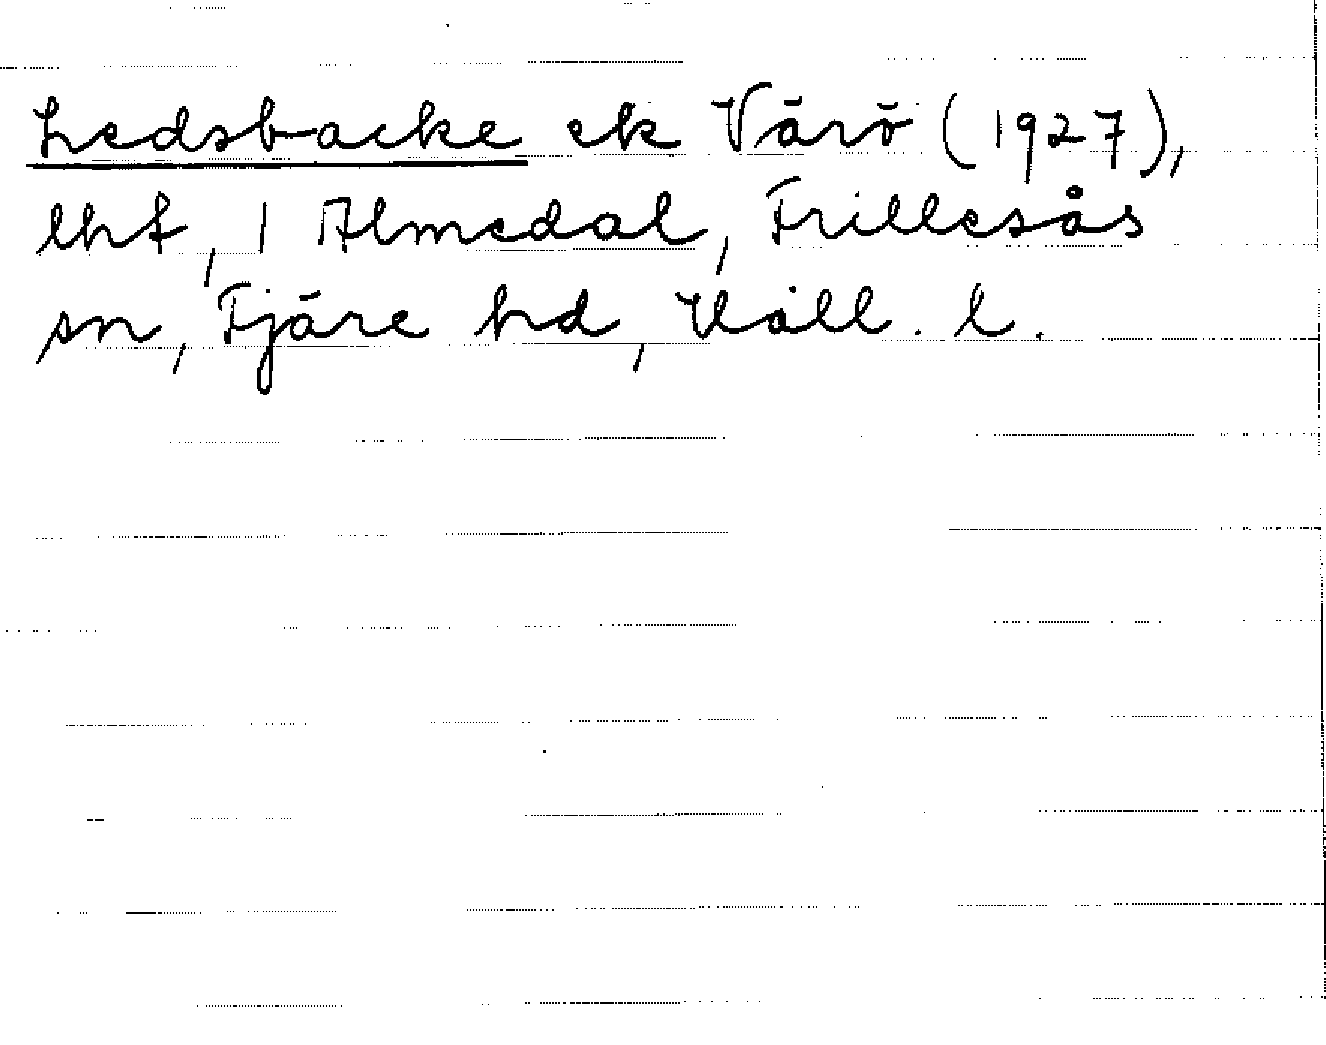 Ledsbacke ek Värö (1927),
lht, 1 Almedal, Frillesås
sn, Fjäre hd, Hall. l.